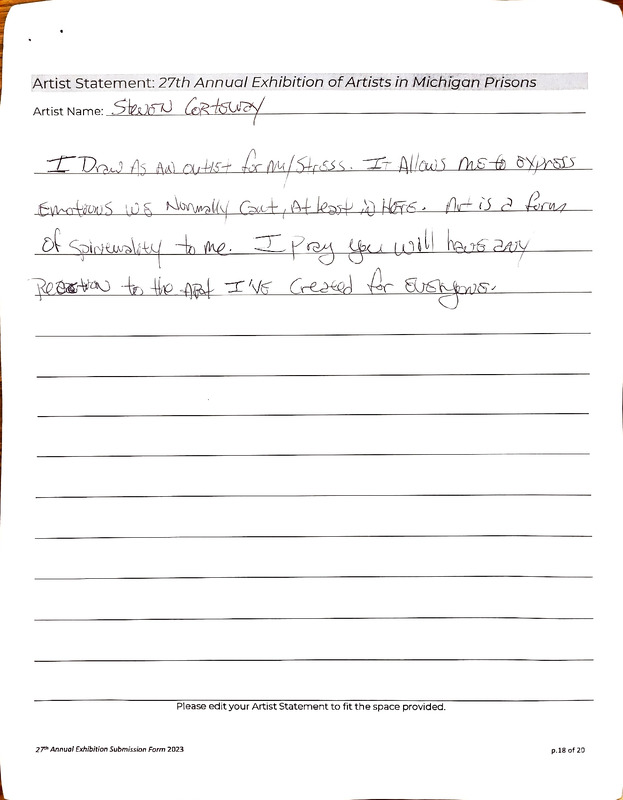 Artist Statement: 27th Annual Exhibition of Artists in Michigan Prisons
Artist Name: Steven
I Draw As an outlet for my/Stress. It Allows me to express
Emotions we Normally Cant, At least in Here. Art is a form
of Spirituality to me. I Pray you will have any
Reaction to the Art I've Created for everyone.
Please edit your Artist Statement to fit the space provided.
27th Annual Exhibition Submission Form 2023
p.18 of 20